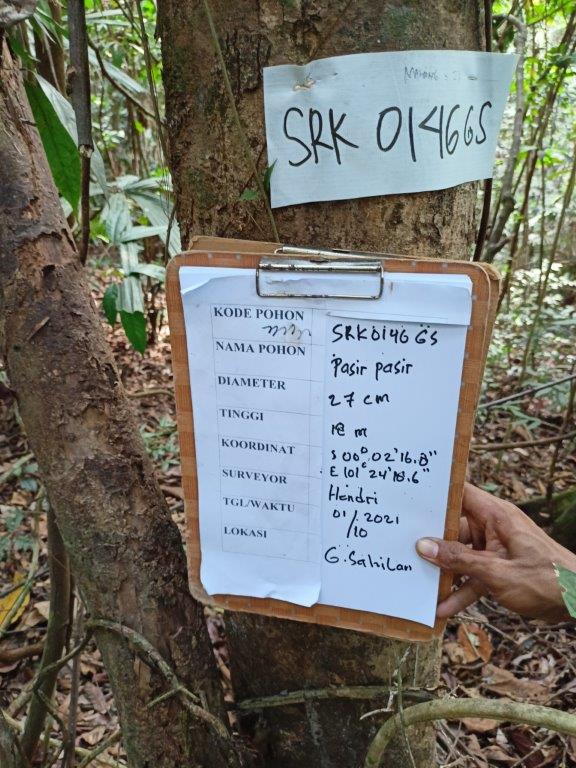 SRK 0146GS
KODE POHON SRK0146 GS
NAMA POHON Pasir pasir
DIAMETER 27 cm
TINGGI 18 m
KOORDINAT S 00° 02' 16.8"
E 101° 24' 18.6"
SURVEYOR Hendri
TGL/WAKTU 01/10 2021
LOKASI G. Sahilan